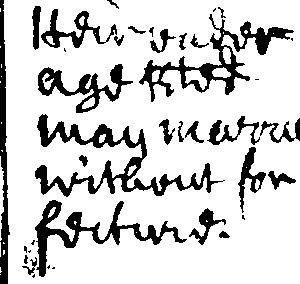 Heir under
age
may marri
without for
feiture.